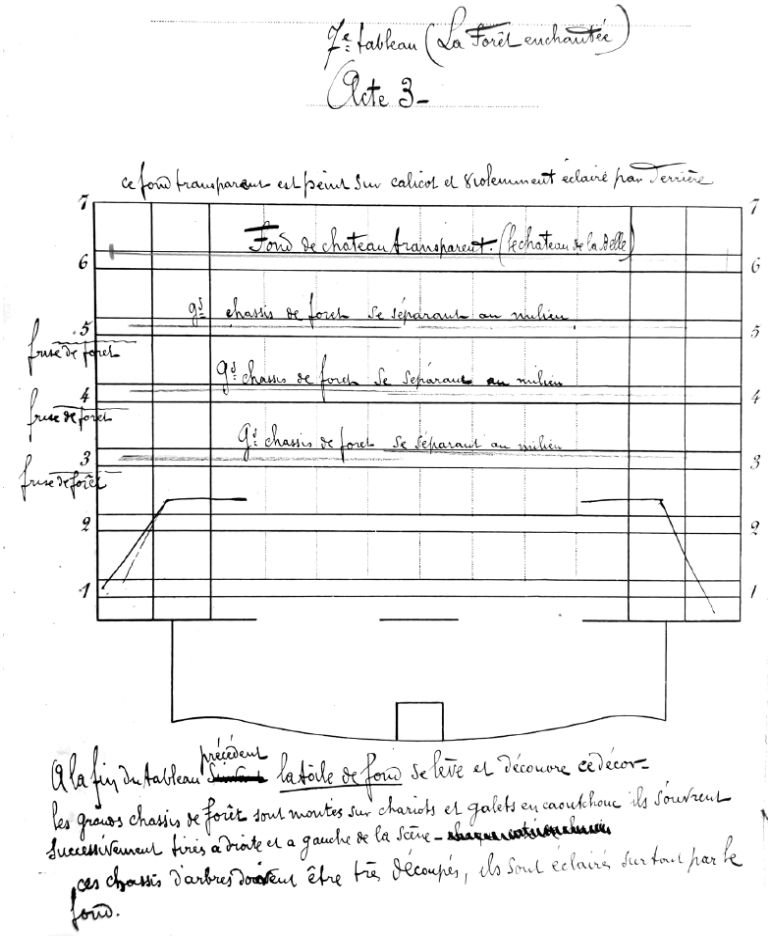 7e tableau (La Forêt enchantée)
Acte 3 -
ce fond transparent est peint sur calicot et violemment éclairé par derrière
7 7
Fond de chateau transparent. (le chateau de la Belle)
6 6
gd chassis de foret se séparant au milieu
5 5
frise de foret
gd chassis de foret se séparant au milieu
4 4
frise de foret
Gd chassis de foret se séparant au milieu
3 3
frise de forêt
2 2
1 1
précédent
A la fin du tableau la toile de fond se lève et découvre ce décor -
les grands chassis de forêt sont montés sur chariots et galets en caoutchouc ils s'ouvrent
successivement tirés a droite et a gauche de la scène -
ces chassis d'arbres doivent être très découpés, ils sont éclairés surtout par le
fond.